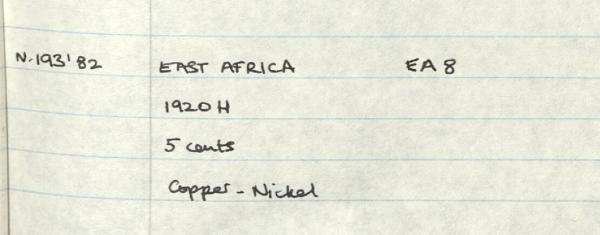 N.193'82 EAST AFRICA EA 8
1920 H
5 cents
Copper - Nickel